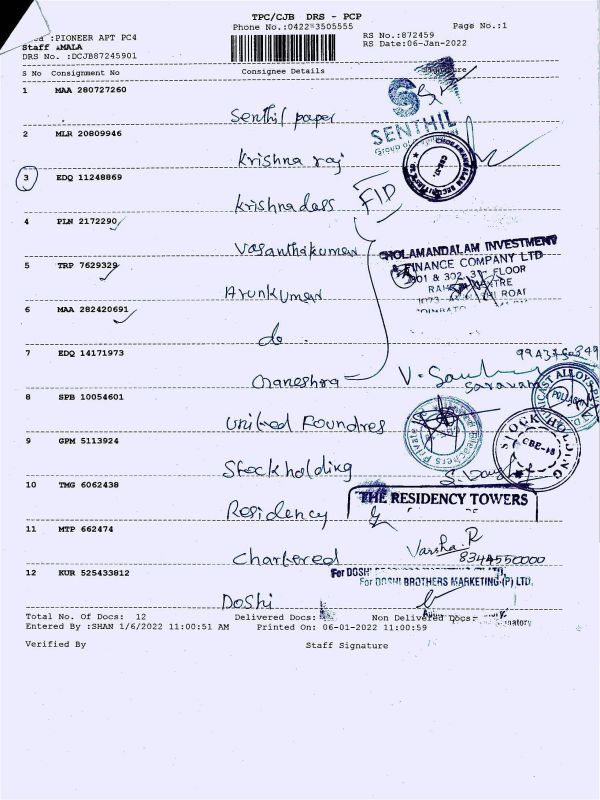 TPC/CJB DRS - PCP
Phone No.:0422-3505555
Page No.:1
:PIONEER APT PC4
RS No.:872459
Staff :MALA
RS Date:06-Jan-2022
DRS No. :DCJB87245901
S No Consignment No Consignee Details
1 MAA 280727260
Senthil paper
SENTHIL
2 MLR 20809946
Krishna raj
3 EDQ 11248869
Krishnadass
4 PLN 2172290
Vasanthakumar
CHOLAMANDALAM INVESTMENT
& FINANCE COMPANY LTD
301 & 302, 3rd FLOOR
5 TRP 7629329
Arunkumar
6 MAA 282420691
do
7 EDQ 14171973
8 SPB 10054601
United Foundres
9 GPM 5113924
Stockholding
STOCK HOLDING
CBE-18
10 TMG 6062438
Residency
THE RESIDENCY TOWERS
11 MTP 662474
Chartered
Varsha.R
12 KUR 525433812
Doshi
For DOSHI BROTHERS MARKETING (P) LTD.
Total No. Of Docs: 12 Delivered Docs: Non Delivered Docs:
Entered By :SHAN 1/6/2022 11:00:51 AM Printed On: 06-01-2022 11:00:59
Verified By Staff Signature